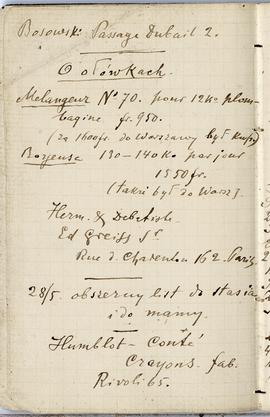 Bosowski Passage Dubail 2.
O ołówkach.
Melangeur No 70. pour 12 Ko plom-
bagine fr. 950.
(za 1600fr. do Warszawy był kup.)
Broyeuse 130-140 Ko par jour
1550 fr.
(takri był do Warsz).
Herm. & Debetrole
Ed Greiss Sr
Rue d. Charenton 162. Paris
28/5. obszerny list do Stasia
i do mamy.
Humblot - Conté
Crayons fab.
Rivoli 65.